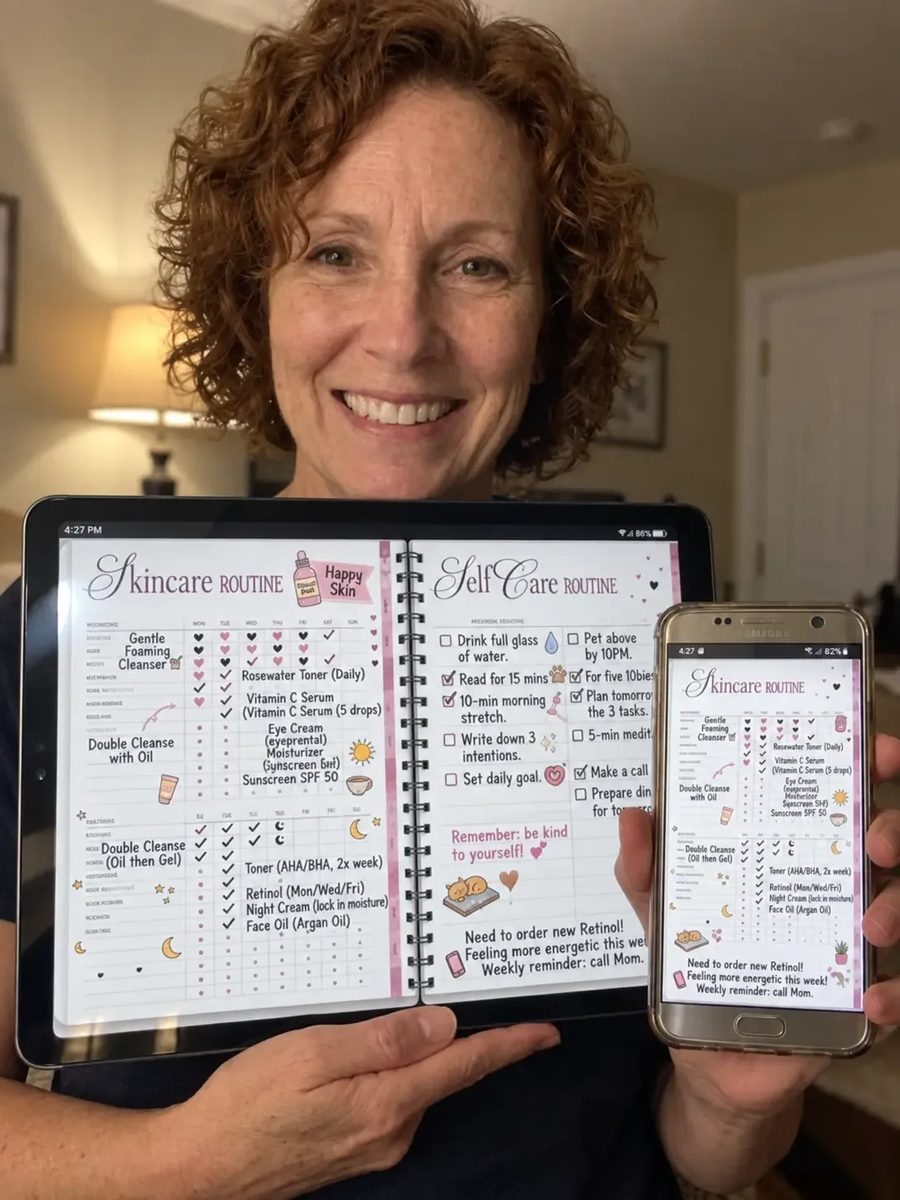 4:27 PM
86%
Skincare ROUTINE
Happy
Skin
MON TUE WED THU FRI SAT SUN
Gentle
Foaming
Cleanser
Rosewater Toner (Daily)
Vitamin C Serum
(Vitamin C Serum (5 drops)
Eye Cream
(eyeprental)
Moisturizer
Sunscreen SPF 50
Double Cleanse
with Oil
Double Cleanse
(Oil then Gel)
Toner (AHA/BHA, 2x week)
Retinol (Mon/Wed/Fri)
Night Cream (lock in moisture)
Face Oil (Argan Oil)
Self Care ROUTINE
Drink full glass
of water.
Read for 15 mins
10-min morning
stretch.
Write down 3
intentions.
Set daily goal.
Pet above
by 10PM.
For five 10bies
Plan tomorro
the 3 tasks.
5-min medit
Make a call
Prepare din
for to
Remember: be kind
to yourself!
Need to order new Retinol!
Feeling more energetic this we
Weekly reminder: call Mom.
SAMSUNG
4:27
82%
Skincare ROUTINE
Gentle
Foaming
Cleanser
Rosewater Toner (Daily)
Vitamin C Serum
(Vitamin C Serum (5 drops)
Eye Cream
(eyeprental)
Moisturizer
Sunscreen SPF 50
Double Cleanse
with Oil
Double Cleanse
(Oil then Gel)
Toner (AHA/BHA, 2x week)
Retinol (Mon/Wed/Fri)
Night Cream (lock in moisture)
Face Oil (Argan Oil)
Need to order new Retinol!
Feeling more energetic this week!
Weekly reminder: call Mom.